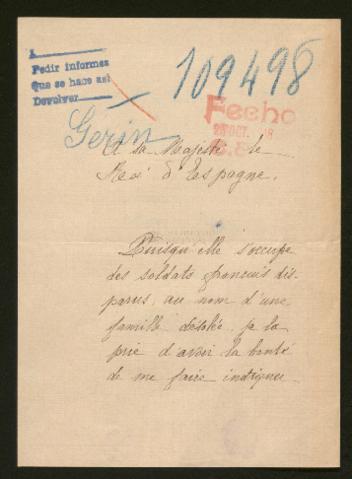 1
Pedir informes
Que se hace así
Devolver
109498
Fecho
OCT. 18
Gérin
A sa Majesté le
Roi d'Espagne.
Puisqu'elle s'occupe
des soldats français dis-
parus, au nom d'une
famille désolée je la
prie d'avoir la bonté
de me faire indiquer